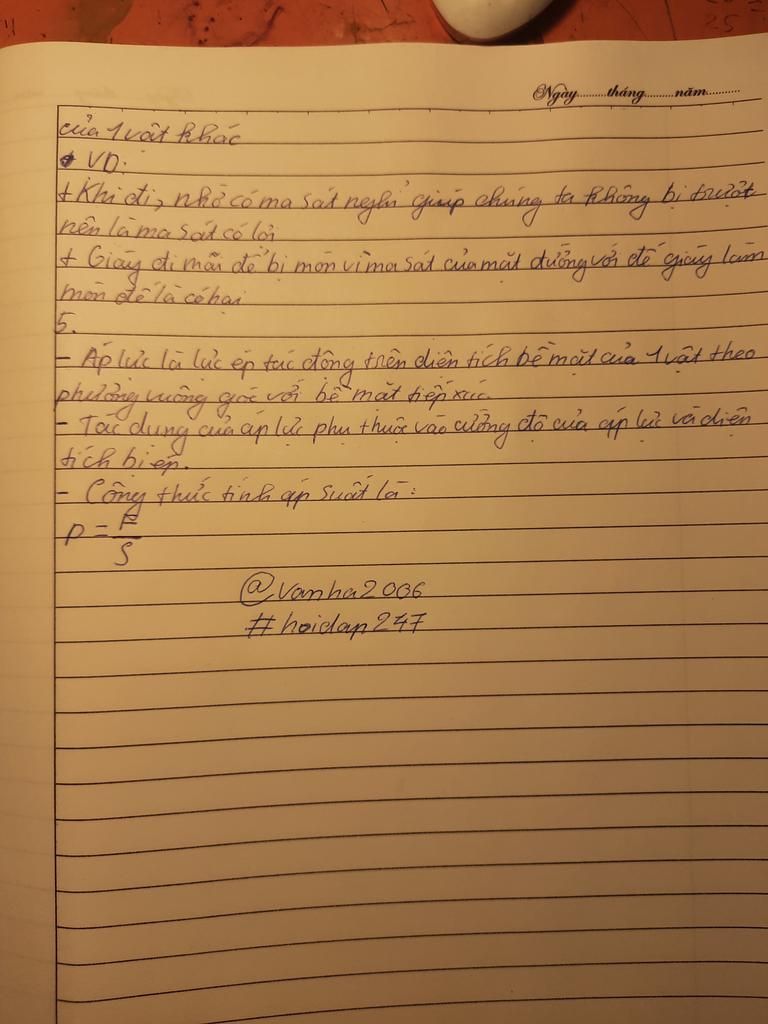 Ngày.........tháng.........năm...........
của 1 vật khác
+ VD:
+ Khi đi, nhờ có ma sát nghỉ giúp chúng ta không bị trượt
nên là ma sát có lợi
+ Giày đi mãi đế bị mòn vì ma sát của mặt đường với đế giày làm
mòn đế là có hại
5.
- Áp lực là lực ép tác động trên diện tích bề mặt của 1 vật theo
phương vuông góc với bề mặt tiếp xúc.
- Tác dụng của áp lực phụ thuộc vào cường độ của áp lực và diện
tích bị ép.
- Công thức tính áp suất là:
p = F
S
@vanha2006
#hoidap247